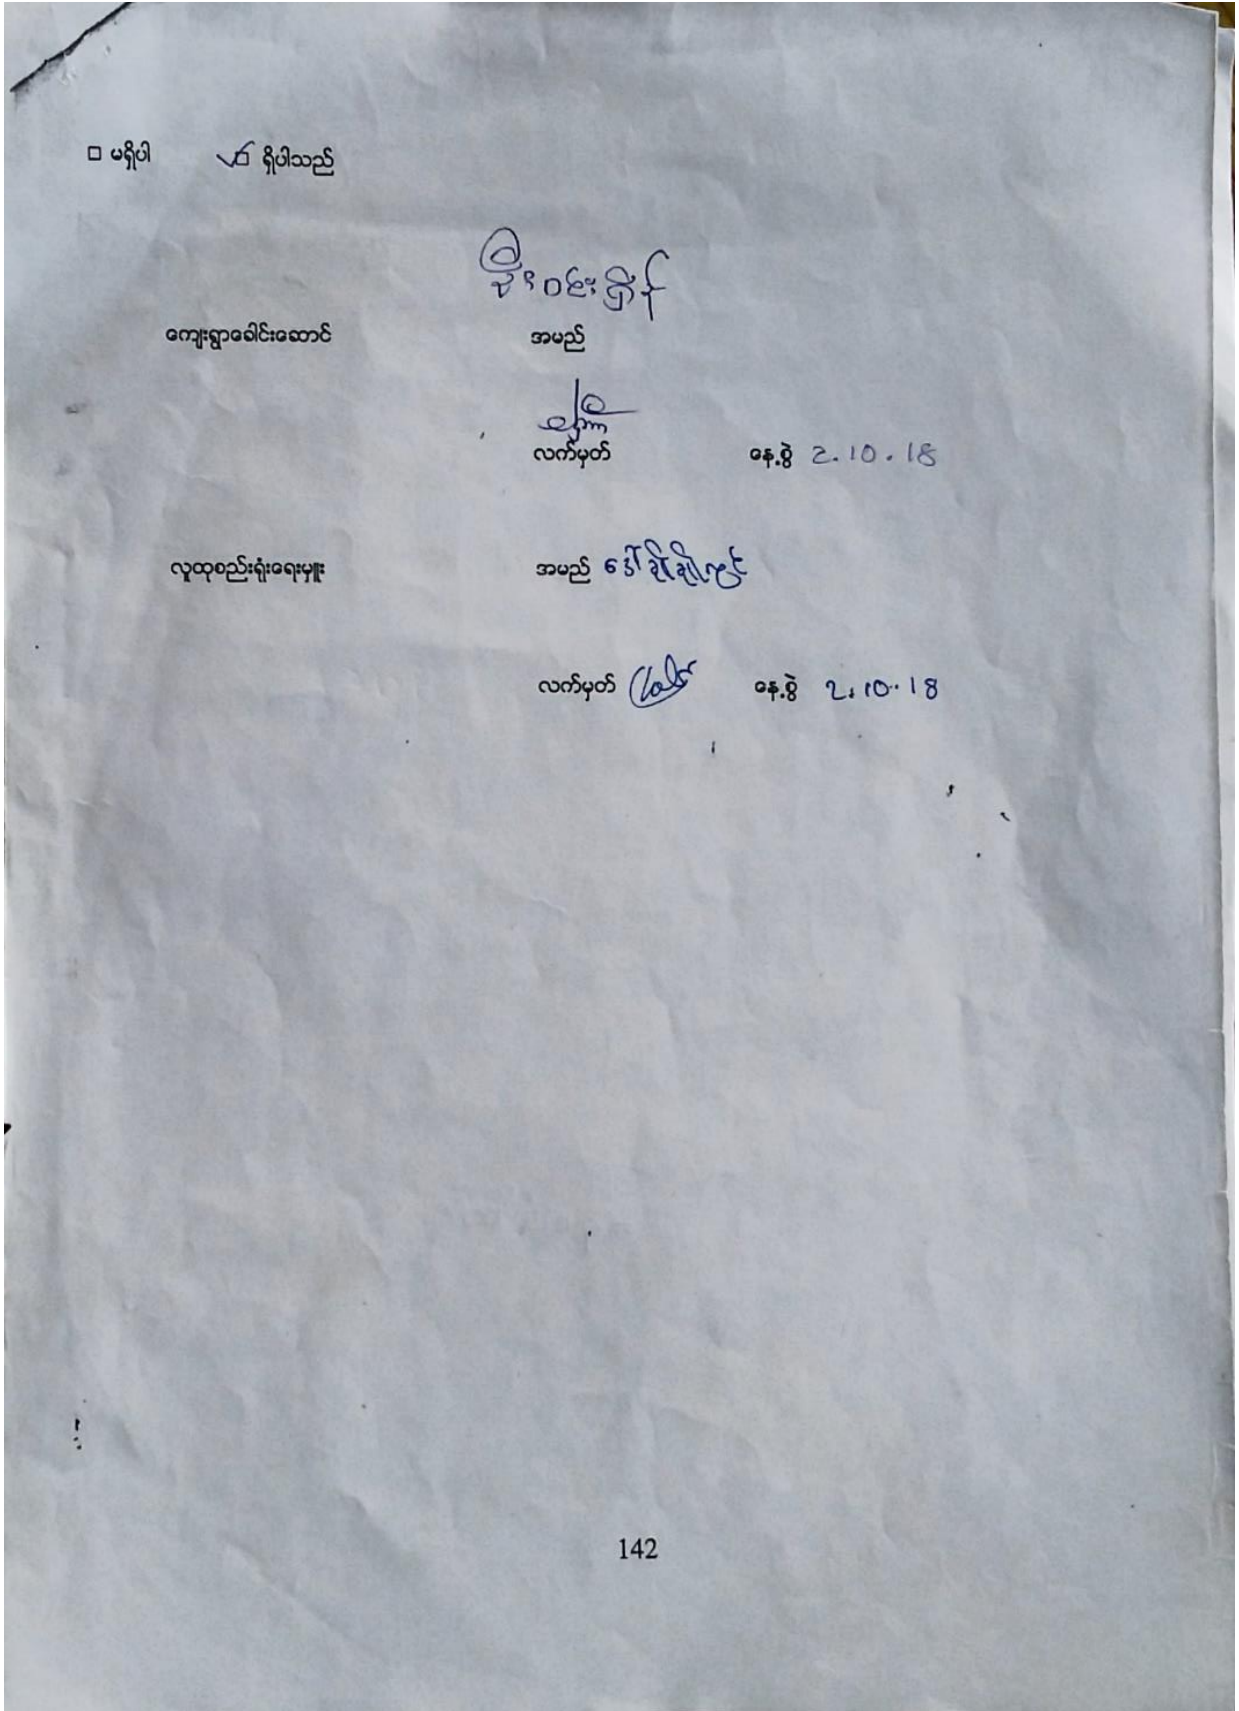 □ မရှိပါ ☑ ရှိပါသည်
ဦးဝင်းရှိန်
ကျေးရွာခေါင်းဆောင် အမည်
လက်မှတ် နေ့စွဲ 2.10.18
လူထုစည်းရုံးရေးမှူး အမည် ဒေါ်ချိုချိုလွင်
လက်မှတ် နေ့စွဲ 2.10.18
142